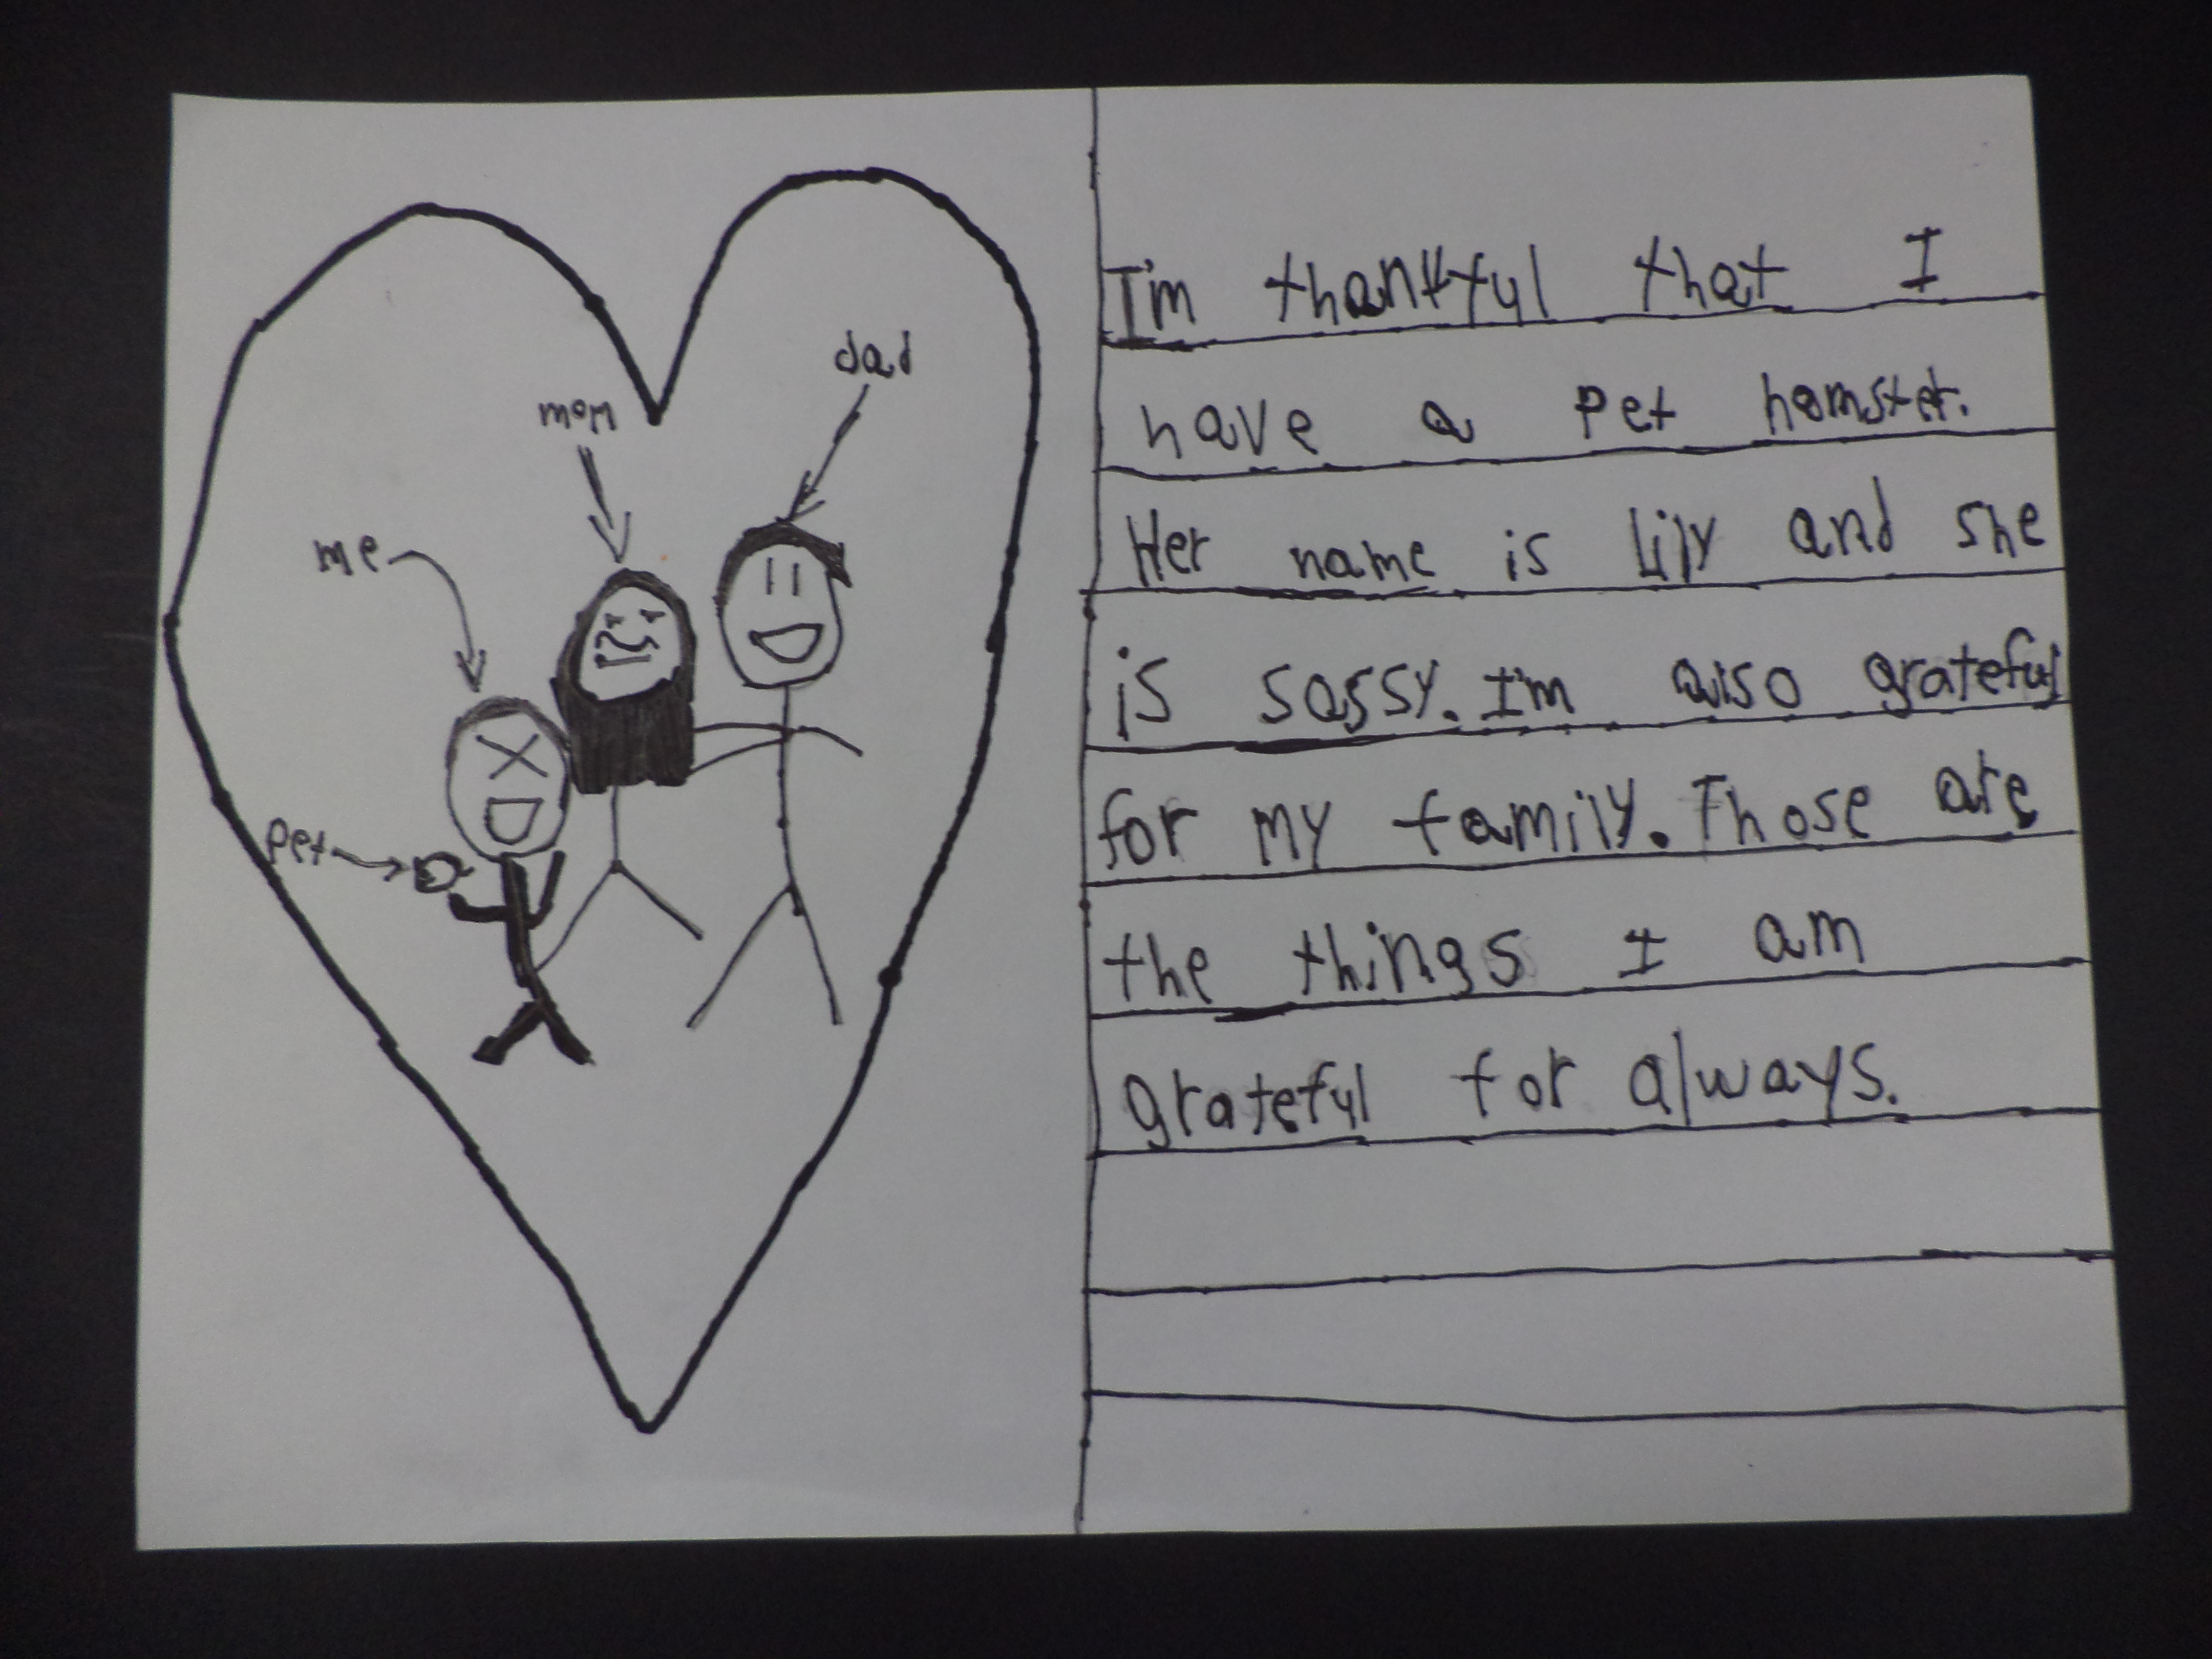 dad
mom
me
Pet
I'm thankful that I
have a Pet hamster.
Her name is Lily and she
is sassy. I'm also grateful
for my family. Those are
the things I am
grateful for always.